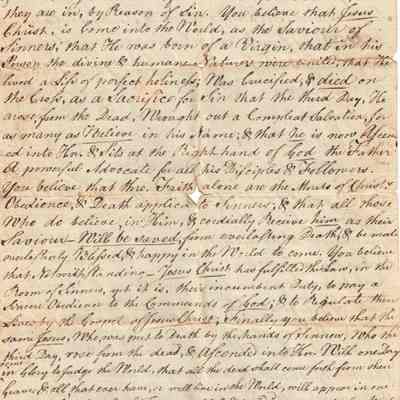 they are in, by Reason of Sin. You believe that Jesus
Christ, is Come into the World, as the Saviour of
Sinners, that He was born of a Virgin, that in his
Person the divine & humane Nature were united, that He
lived a Life of perfect holiness; Was Crucified, & died on
the Cross, as a Sacrifice for Sin that the third Day, He
arose from the Dead, Wrought out a Compleat Salvation, for
as many as Believe in his Name; & that he is now
ed into Hvn. & Sits at the Right hand of God the Father
A powerful Advocate for all his Disciples & Followers.
You believe that thro. Faith alone are the Merits of Christ's
Obedience, & Death applied to Sinners; & that all those
Who do believe in Him, & cordially Receive him as their
Saviour Will be saved, from everlasting Death; & be made
everlastingly Blessed, & happy in the World to come. You believe
that, Notwithstanding Jesus Christ has fulfilled the Law, in the
Room of Sinners, yet it is, their incumbent Duty, to pay a
Sincere Obedience to the Commands of God; & to Regulate their
Lives by the Gospel of Jesus Christ; Finally you believe that the
same Jesus, Who was put to Death by the hands of Sinners, Who the
third Day, rose from the dead, & Ascended into Hvn. Will one Day
in Glory to Judge the World, that all the dead shall come forth from their
Graves, & all that ever have, or will live in the World, will appear in one